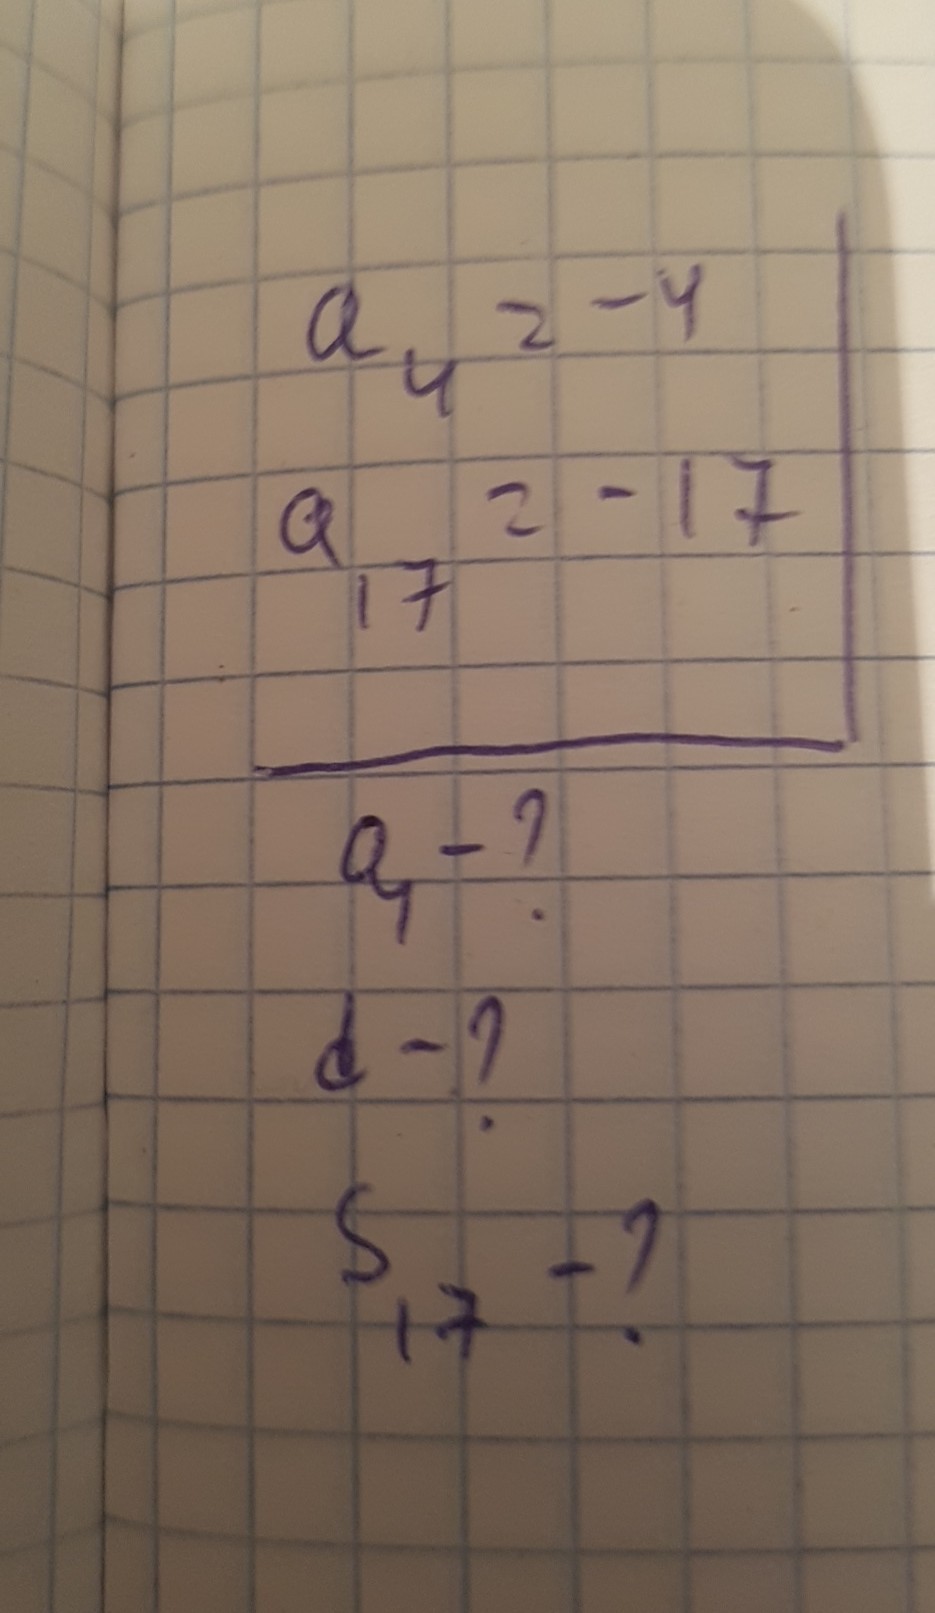 a₄ = -4
a₁₇ = -17
a₁ - ?
d - ?
S₁₇ - ?